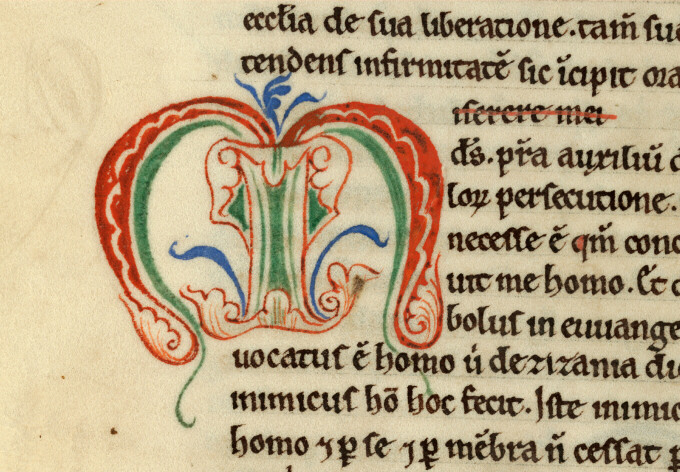 eccl̃ia de sua liberatione. tam̃ su
tendens infirmitatẽ sic ĩcipit ora
M iserere mei
d̃s. p̃ra auxiliũ d
loꝝ persecutione.
necesse ẽ qm̃ conc
uit me homo. Et d
bolus in euuange
uocatus ẽ homo ũ de zizania di
inimicus hõ hoc fecit. Iste inimic
homo ⁊ ꝑ se ⁊ ꝑ mẽbra ñ cessat p